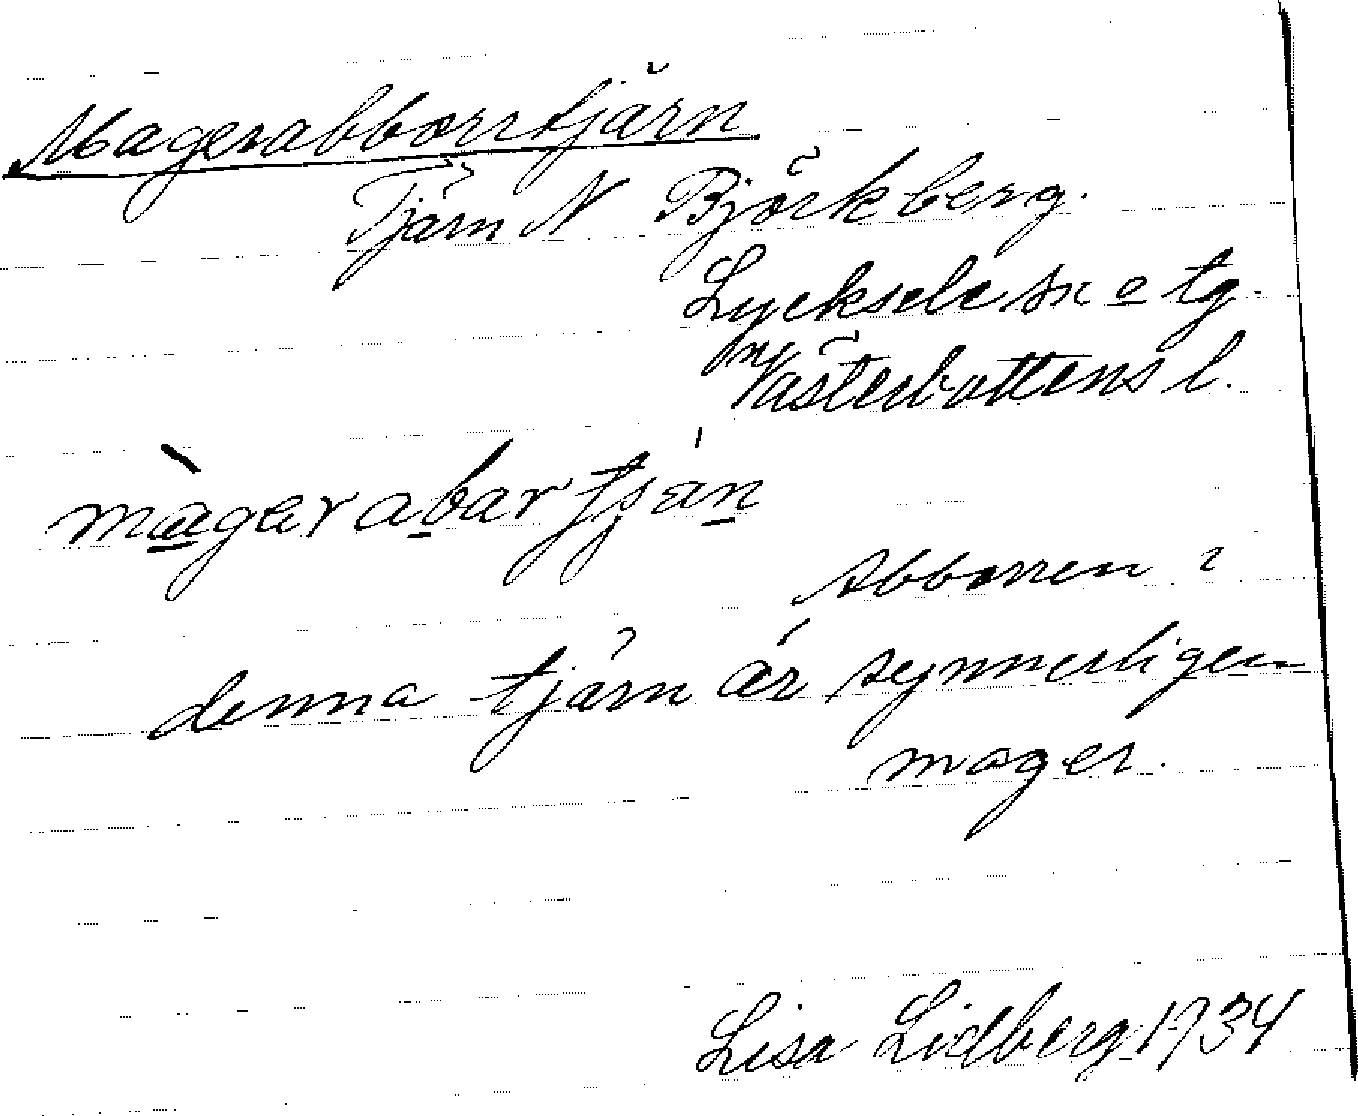 Magerabborrtjärn
Tjärn N Björkberg.
Lycksele sn o tg.
Västerbottens l.
màgerabartjän
Abborren i
denna tjärn är synnerligen
mager.
Lisa Lidberg 1934